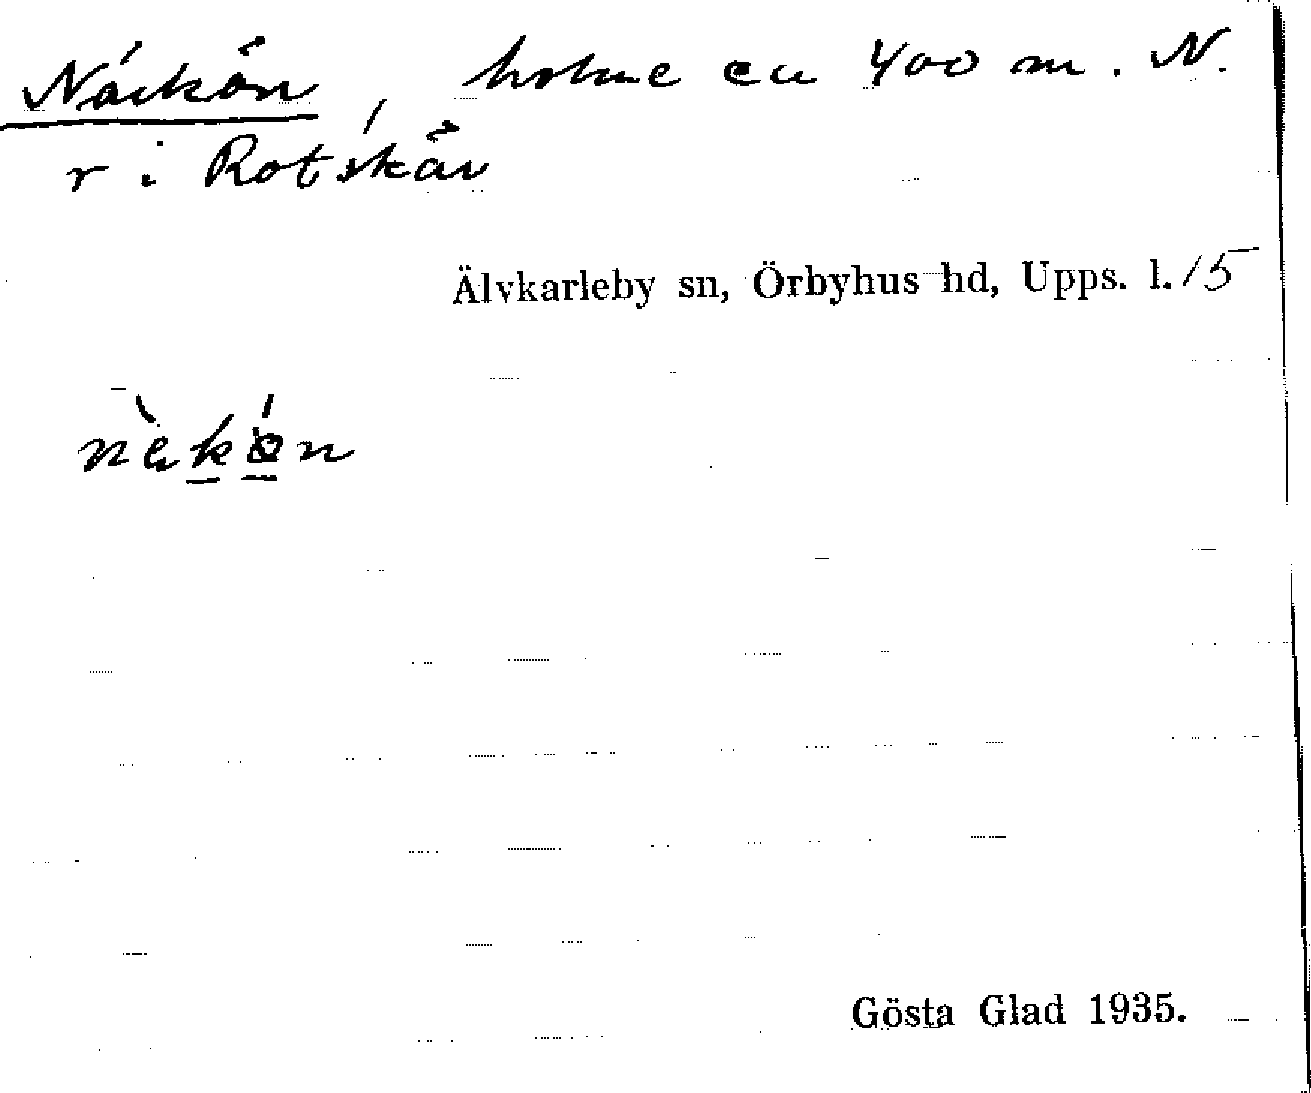 holme ca 400 m. N.
r i Rotskär
Älvkarleby sn, Örbyhus hd, Upps. l. 15
Gösta Glad 1935.